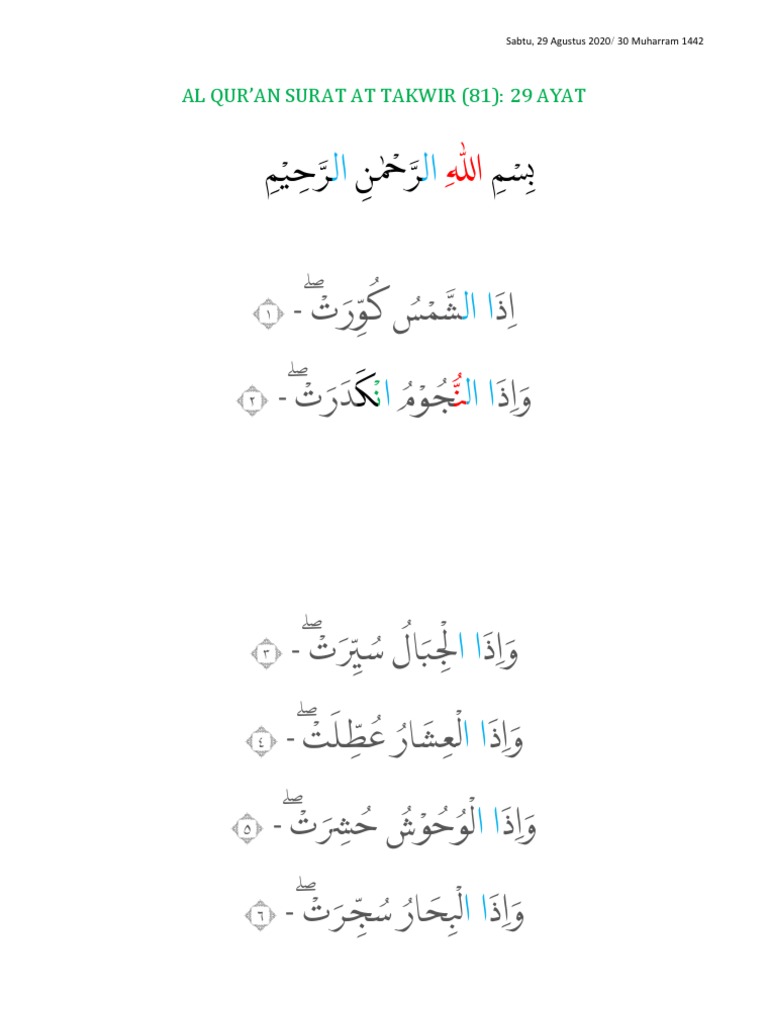 Sabtu, 29 Agustus 2020/ 30 Muharram 1442
AL QUR’AN SURAT AT TAKWIR (81): 29 AYAT
بِسْمِ اللّٰهِ الرَّحْمٰنِ الرَّحِيْمِ
اِذَا الشَّمْسُ كُوِّرَتْۖ - ١
وَاِذَا النُّجُوْمُ انْكَدَرَتْۖ - ٢
وَاِذَا الْجِبَالُ سُيِّرَتْۖ - ٣
وَاِذَا الْعِشَارُ عُطِّلَتْۖ - ٤
وَاِذَا الْوُحُوْشُ حُشِرَتْۖ - ٥
وَاِذَا الْبِحَارُ سُجِّرَتْۖ - ٦